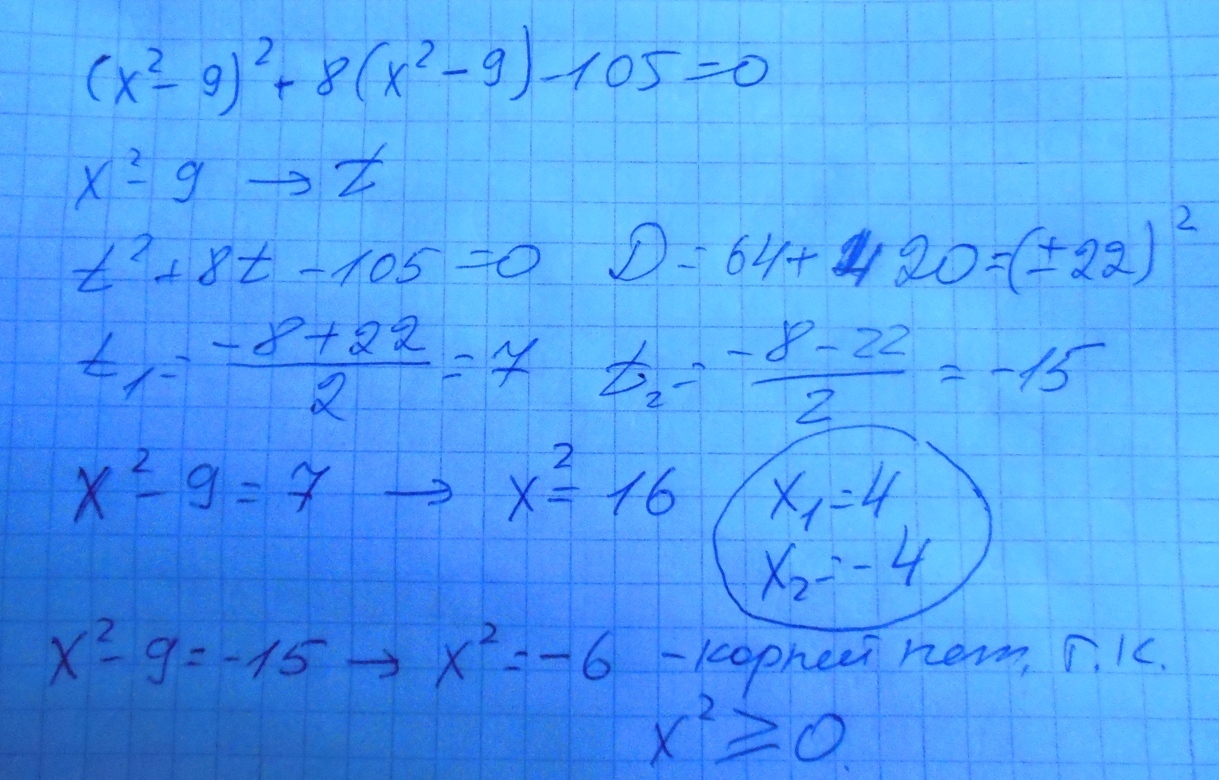 (x² - 9)² + 8(x² - 9) - 105 = 0
x² - 9 → t
t² + 8t - 105 = 0 D = 64 + 420 = (± 22)²
t₁ = (-8 + 22)/2 = 7 t₂ = (-8 - 22)/2 = -15
x² - 9 = 7 → x² = 16 x₁ = 4
x₂ = -4
x² - 9 = -15 → x² = -6 - корней нет, т.к.
x² ≥ 0.